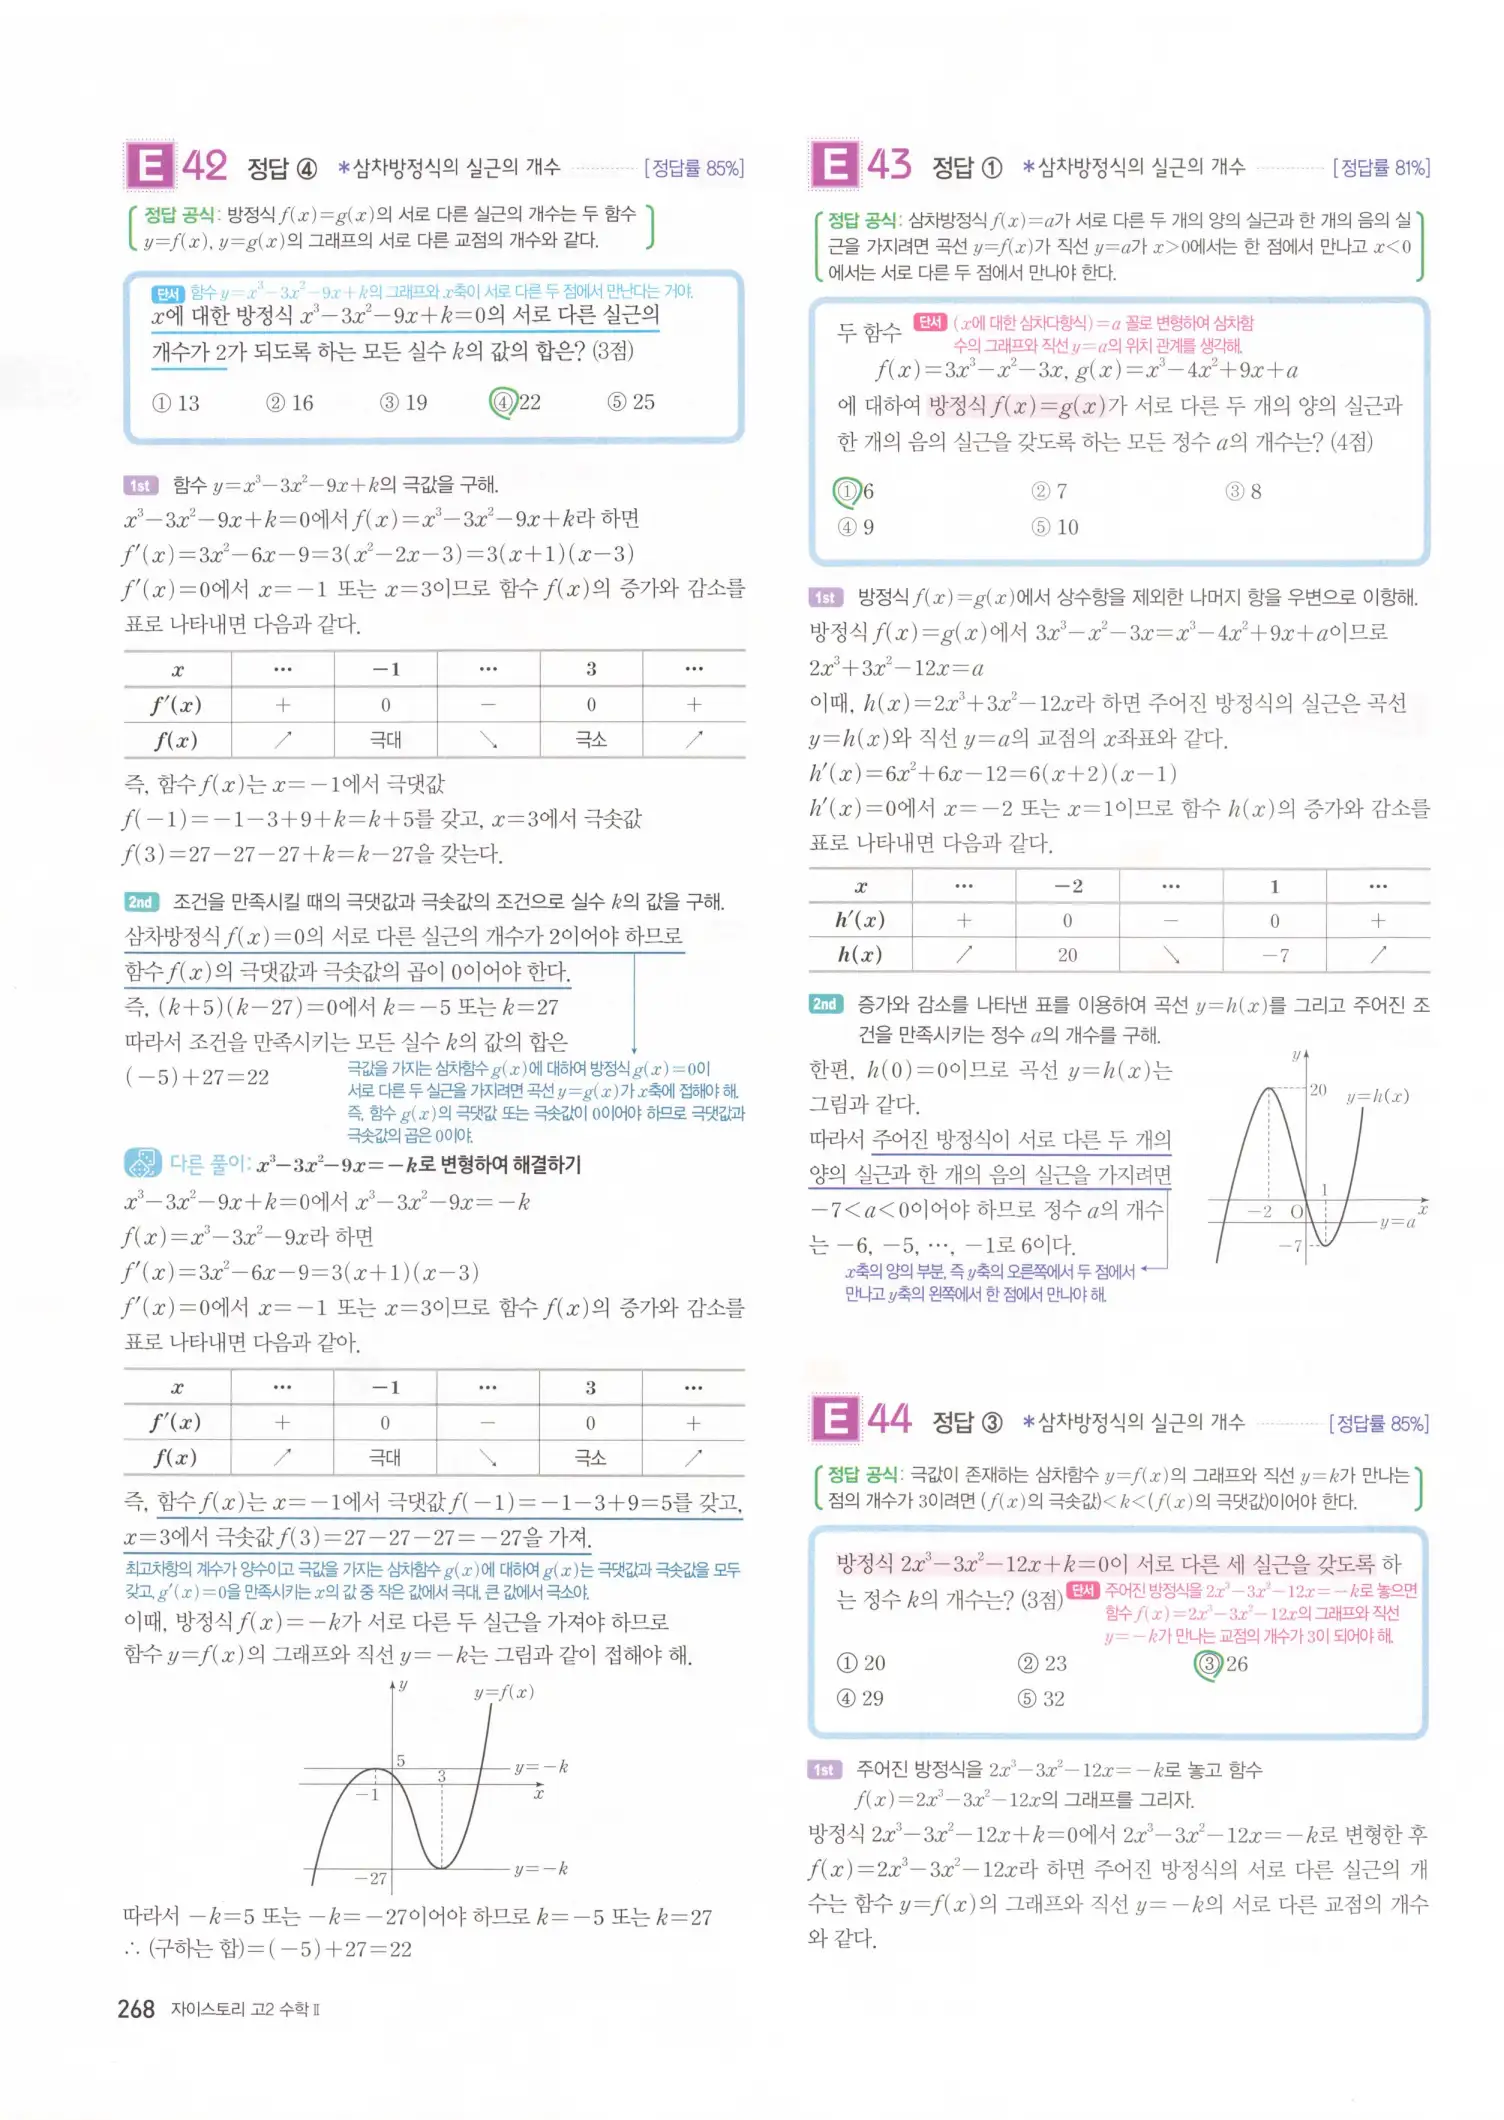 E 42 정답 ④ *삼차방정식의 실근의 개수 [정답률 85%]
정답 공식: 방정식 f(x)=g(x)의 서로 다른 실근의 개수는 두 함수
y=f(x), y=g(x)의 그래프의 서로 다른 교점의 개수와 같다.
단서 함수 y=x³-3x²-9x+k의 그래프와 x축이 서로 다른 두 점에서 만난다는 거야.
x에 대한 방정식 x³-3x²-9x+k=0의 서로 다른 실근의
개수가 2가 되도록 하는 모든 실수 k의 값의 합은? (3점)
① 13 ② 16 ③ 19 ④ 22 ⑤ 25
1st 함수 y=x³-3x²-9x+k의 극값을 구해.
x³-3x²-9x+k=0에서 f(x)=x³-3x²-9x+k라 하면
f′(x)=3x²-6x-9=3(x²-2x-3)=3(x+1)(x-3)
f′(x)=0에서 x=-1 또는 x=3이므로 함수 f(x)의 증가와 감소를
표로 나타내면 다음과 같다.
x … -1 … 3 …
f′(x) + 0 - 0 +
f(x) ↗ 극대 ↘ 극소 ↗
즉, 함수 f(x)는 x=-1에서 극댓값
f(-1)=-1-3+9+k=k+5를 갖고, x=3에서 극솟값
f(3)=27-27-27+k=k-27을 갖는다.
2nd 조건을 만족시킬 때의 극댓값과 극솟값의 조건으로 실수 k의 값을 구해.
삼차방정식 f(x)=0의 서로 다른 실근의 개수가 2이어야 하므로
함수 f(x)의 극댓값과 극솟값의 곱이 0이어야 한다.
즉, (k+5)(k-27)=0에서 k=-5 또는 k=27
따라서 조건을 만족시키는 모든 실수 k의 값의 합은
(-5)+27=22
극값을 가지는 삼차함수 g(x)에 대하여 방정식 g(x)=0이
서로 다른 두 실근을 가지려면 곡선 y=g(x)가 x축에 접해야 해.
즉, 함수 g(x)의 극댓값 또는 극솟값이 0이어야 하므로 극댓값과
극솟값의 곱은 0이야.
다른 풀이: x³-3x²-9x=-k로 변형하여 해결하기
x³-3x²-9x+k=0에서 x³-3x²-9x=-k
f(x)=x³-3x²-9x라 하면
f′(x)=3x²-6x-9=3(x+1)(x-3)
f′(x)=0에서 x=-1 또는 x=3이므로 함수 f(x)의 증가와 감소를
표로 나타내면 다음과 같아.
x … -1 … 3 …
f′(x) + 0 - 0 +
f(x) ↗ 극대 ↘ 극소 ↗
즉, 함수 f(x)는 x=-1에서 극댓값 f(-1)=-1-3+9=5를 갖고,
x=3에서 극솟값 f(3)=27-27-27=-27을 가져.
최고차항의 계수가 양수이고 극값을 가지는 삼차함수 g(x)에 대하여 g(x)는 극댓값과 극솟값을 모두
갖고, g′(x)=0을 만족시키는 x의 값 중 작은 값에서 극대, 큰 값에서 극소야.
이때, 방정식 f(x)=-k가 서로 다른 두 실근을 가져야 하므로
함수 y=f(x)의 그래프와 직선 y=-k는 그림과 같이 접해야 해.
y y=f(x)
5 3 y=-k
-1 x
-27 y=-k
따라서 -k=5 또는 -k=-27이어야 하므로 k=-5 또는 k=27
∴ (구하는 합)=(-5)+27=22
268 자이스토리 고2 수학 II
E 43 정답 ① *삼차방정식의 실근의 개수 [정답률 81%]
정답 공식: 삼차방정식 f(x)=a가 서로 다른 두 개의 양의 실근과 한 개의 음의 실
근을 가지려면 곡선 y=f(x)가 직선 y=a가 x>0에서는 한 점에서 만나고 x<0
에서는 서로 다른 두 점에서 만나야 한다.
두 함수 단서 (x에 대한 삼차다항식)=a 꼴로 변형하여 삼차함
수의 그래프와 직선 y=a의 위치 관계를 생각해.
f(x)=3x³-x²-3x, g(x)=x³-4x²+9x+a
에 대하여 방정식 f(x)=g(x)가 서로 다른 두 개의 양의 실근과
한 개의 음의 실근을 갖도록 하는 모든 정수 a의 개수는? (4점)
① 6 ② 7 ③ 8
④ 9 ⑤ 10
1st 방정식 f(x)=g(x)에서 상수항을 제외한 나머지 항을 우변으로 이항해.
방정식 f(x)=g(x)에서 3x³-x²-3x=x³-4x²+9x+a이므로
2x³+3x²-12x=a
이때, h(x)=2x³+3x²-12x라 하면 주어진 방정식의 실근은 곡선
y=h(x)와 직선 y=a의 교점의 x좌표와 같다.
h′(x)=6x²+6x-12=6(x+2)(x-1)
h′(x)=0에서 x=-2 또는 x=1이므로 함수 h(x)의 증가와 감소를
표로 나타내면 다음과 같다.
x … -2 … 1 …
h′(x) + 0 - 0 +
h(x) ↗ 20 ↘ -7 ↗
2nd 증가와 감소를 나타낸 표를 이용하여 곡선 y=h(x)를 그리고 주어진 조
건을 만족시키는 정수 a의 개수를 구해.
한편, h(0)=0이므로 곡선 y=h(x)는
그림과 같다.
따라서 주어진 방정식이 서로 다른 두 개의
양의 실근과 한 개의 음의 실근을 가지려면
-7<a<0이어야 하므로 정수 a의 개수
는 -6, -5, …, -1로 6이다.
x축의 양의 부분, 즉 y축의 오른쪽에서 두 점에서
만나고 y축의 왼쪽에서 한 점에서 만나야 해.
y
20 y=h(x)
1
-2 O x
y=a
-7
E 44 정답 ③ *삼차방정식의 실근의 개수 [정답률 85%]
정답 공식: 극값이 존재하는 삼차함수 y=f(x)의 그래프와 직선 y=k가 만나는
점의 개수가 3이려면 (f(x)의 극솟값)<k<(f(x)의 극댓값)이어야 한다.
방정식 2x³-3x²-12x+k=0이 서로 다른 세 실근을 갖도록 하
는 정수 k의 개수는? (3점) 단서 주어진 방정식을 2x³-3x²-12x=-k로 놓으면
함수 f(x)=2x³-3x²-12x의 그래프와 직선
y=-k가 만나는 교점의 개수가 3이 되어야 해.
① 20 ② 23 ③ 26
④ 29 ⑤ 32
1st 주어진 방정식을 2x³-3x²-12x=-k로 놓고 함수
f(x)=2x³-3x²-12x의 그래프를 그리자.
방정식 2x³-3x²-12x+k=0에서 2x³-3x²-12x=-k로 변형한 후
f(x)=2x³-3x²-12x라 하면 주어진 방정식의 서로 다른 실근의 개
수는 함수 y=f(x)의 그래프와 직선 y=-k의 서로 다른 교점의 개수
와 같다.